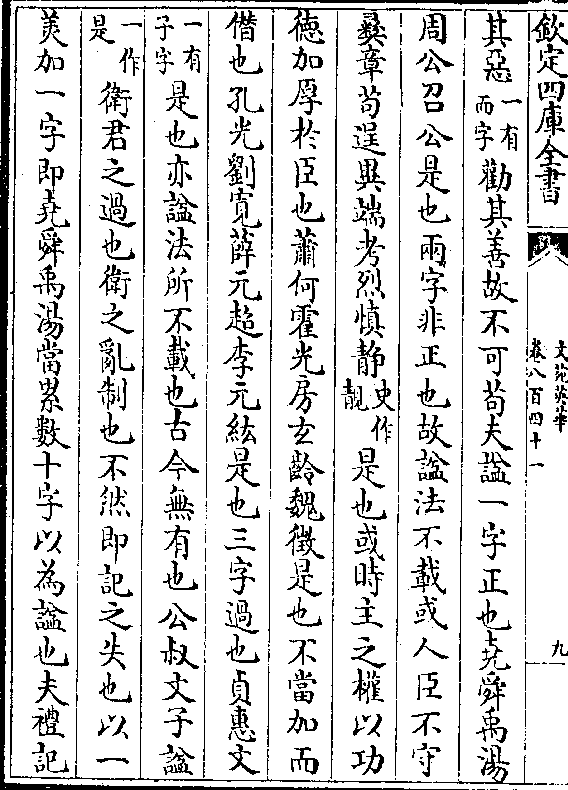 欽定四庫全書
文苑英華
卷八百四十一
九
其惡一有而字勸其善故不可苟夫諡一字正也堯舜禹湯
周公召公是也兩字非正也故諡法不載或人臣不守
彞章苟逞異端考烈慎静史作靚是也或時主之權以功
徳加厚於臣也蕭何霍光房玄齡魏徵是也不當加而
僭也孔光劉寛薛元超李元紘是也三字過也貞惠文
子一有子字是也亦諡法所不載也古今無有也公叔文子諡
一作是衛君之過也衛之亂制也不然即記之失也以一
美加一字即堯舜禹湯當累數十字以為諡也夫禮記